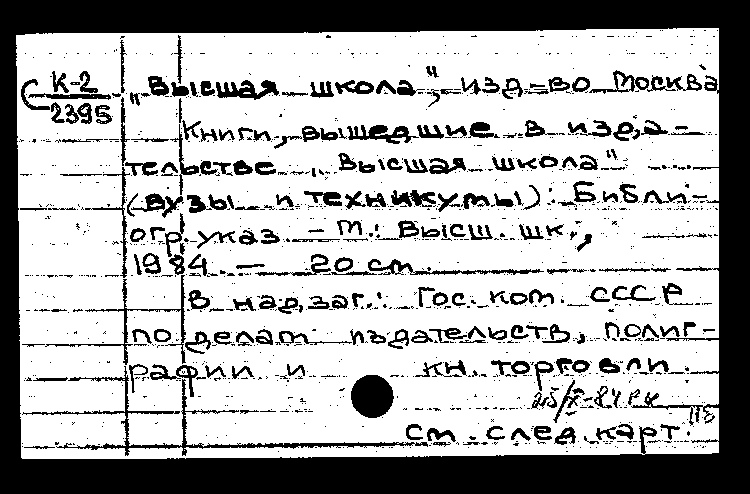 К-2
2395
„Высшая школа", изд-во Москва
Книги, вышедшие в изда-
тельстве „Высшая школа" ...
(вузы и техникумы): Библи-
огр. указ. – М.: Высш. шк.,
1984. — 20 см.
В надзаг.: Гос. ком. СССР
по делам издательств, полиг-
рафии и кн. торговли.
см. след. карт.